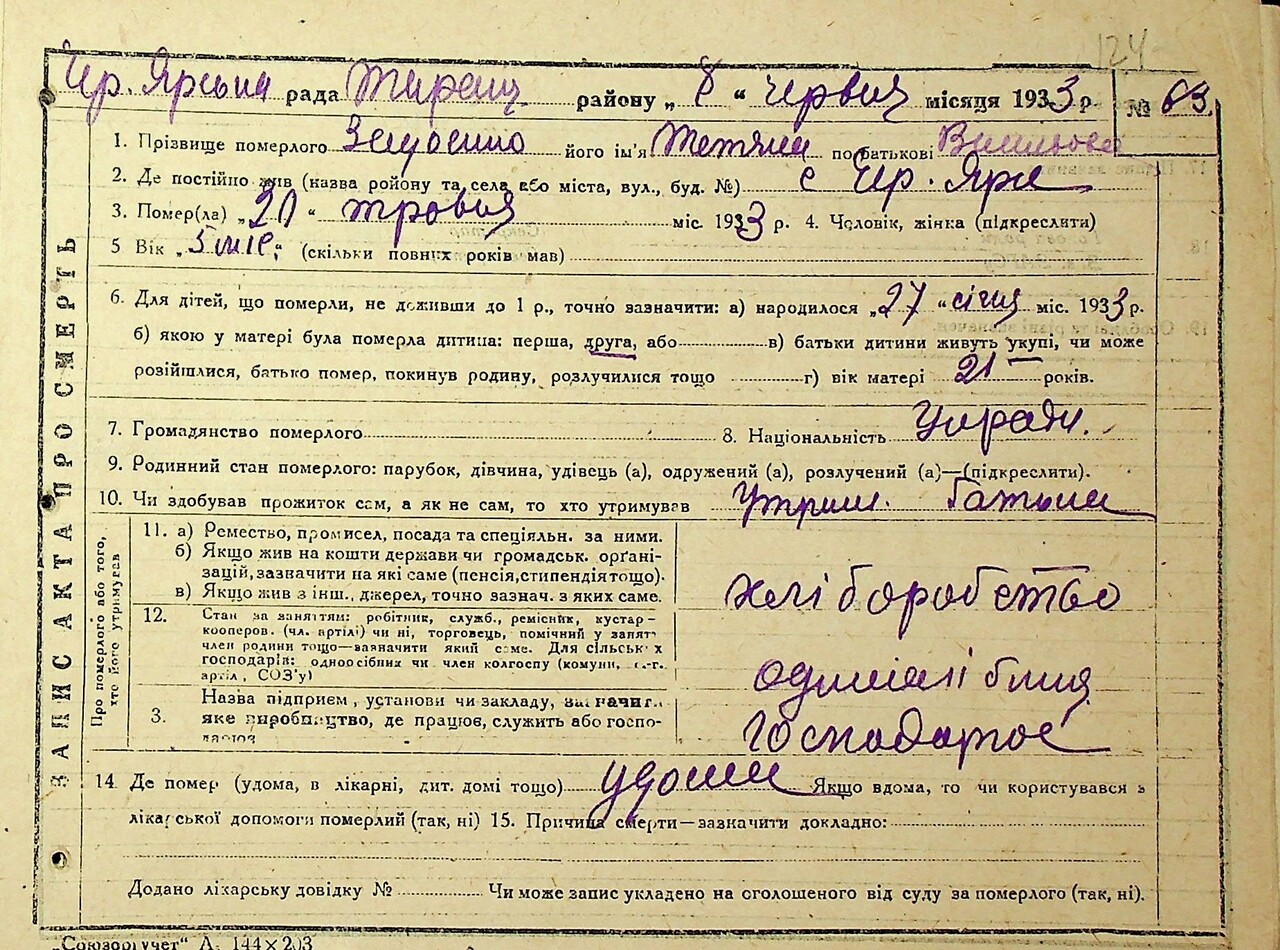 124
Чер. Ярська рада Тиращ району „ 8 “ червня місяця 1933 р. № 63.
1. Прізвище померлого його ім'я Тетяна по батькові
2. Де постійно жив (назва ройону та села або міста, вул., буд. №) с Чер. Яри
3. Помер(ла) „ 20 “ травня міс. 1933 р. 4. Чоловік, жінка (підкреслити)
5 Вік „ 5 міс. “ (скільки повних років мав)
6. Для дітей, що померли, не доживши до 1 р., точно зазначити: а) народилося „ 27 “ січня міс. 1933 р.
б) якою у матері була померла дитина: перша, друга, або в) батьки дитини живуть укупі, чи може
розійшлися, батько помер, покинув родину, розлучилися тощо г) вік матері 21 років.
7. Громадянство померлого 8. Національність
9. Родинний стан померлого: парубок, дівчина, удівець (а), одружений (а), розлучений (а)—(підкреслити).
10. Чи здобував прожиток сам, а як не сам, то хто утримував утрим. батька
ЗАПИС АКТА ПРО СМЕРТЬ
Про померлого або того, хто його утримував
11. а) Ремество, промисел, посада та спеціяльн. за ними.
б) Якщо жив на кошти держави чи громадськ. орґані-
зацій, зазначити на які саме (пенсія, стипендія тощо).
в) Якщо жив з інш., джерел, точно зазнач. з яких саме.
хліборобство
12. Стан за заняттям: робітник, служб., ремісник, кустар-
кооперов. (чл. артілі) чи ні, торговець, помічний у занят
член родини тощо—зазначити який саме. Для сільськ х
господарів: одноосібних чи член колгоспу (комуни, с.-г.
артіл , СОЗ'у)
3. Назва підприєм , установи чи закладу, зазначит.
яке виробництво, де працює, служить або госпо-
господарює
14. Де помер (удома, в лікарні, дит. домі тощо) удома Якщо вдома, то чи користувався з
лікарської допомоги померлий (так, ні) 15. Причина смерти—зазначити докладно:
Додано лікарську довідку № Чи може запис укладено на оголошеного від суду за померлого (так, ні).
„Союзоргучет“ А. 144×203